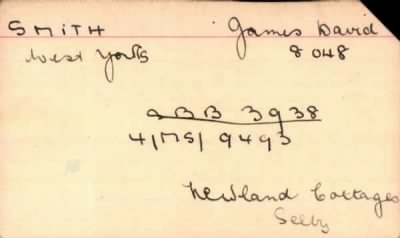 SMITH James David
West Yorks 8048
a BB 3938
4/MS/ 9493
Newland Cottages
Selby